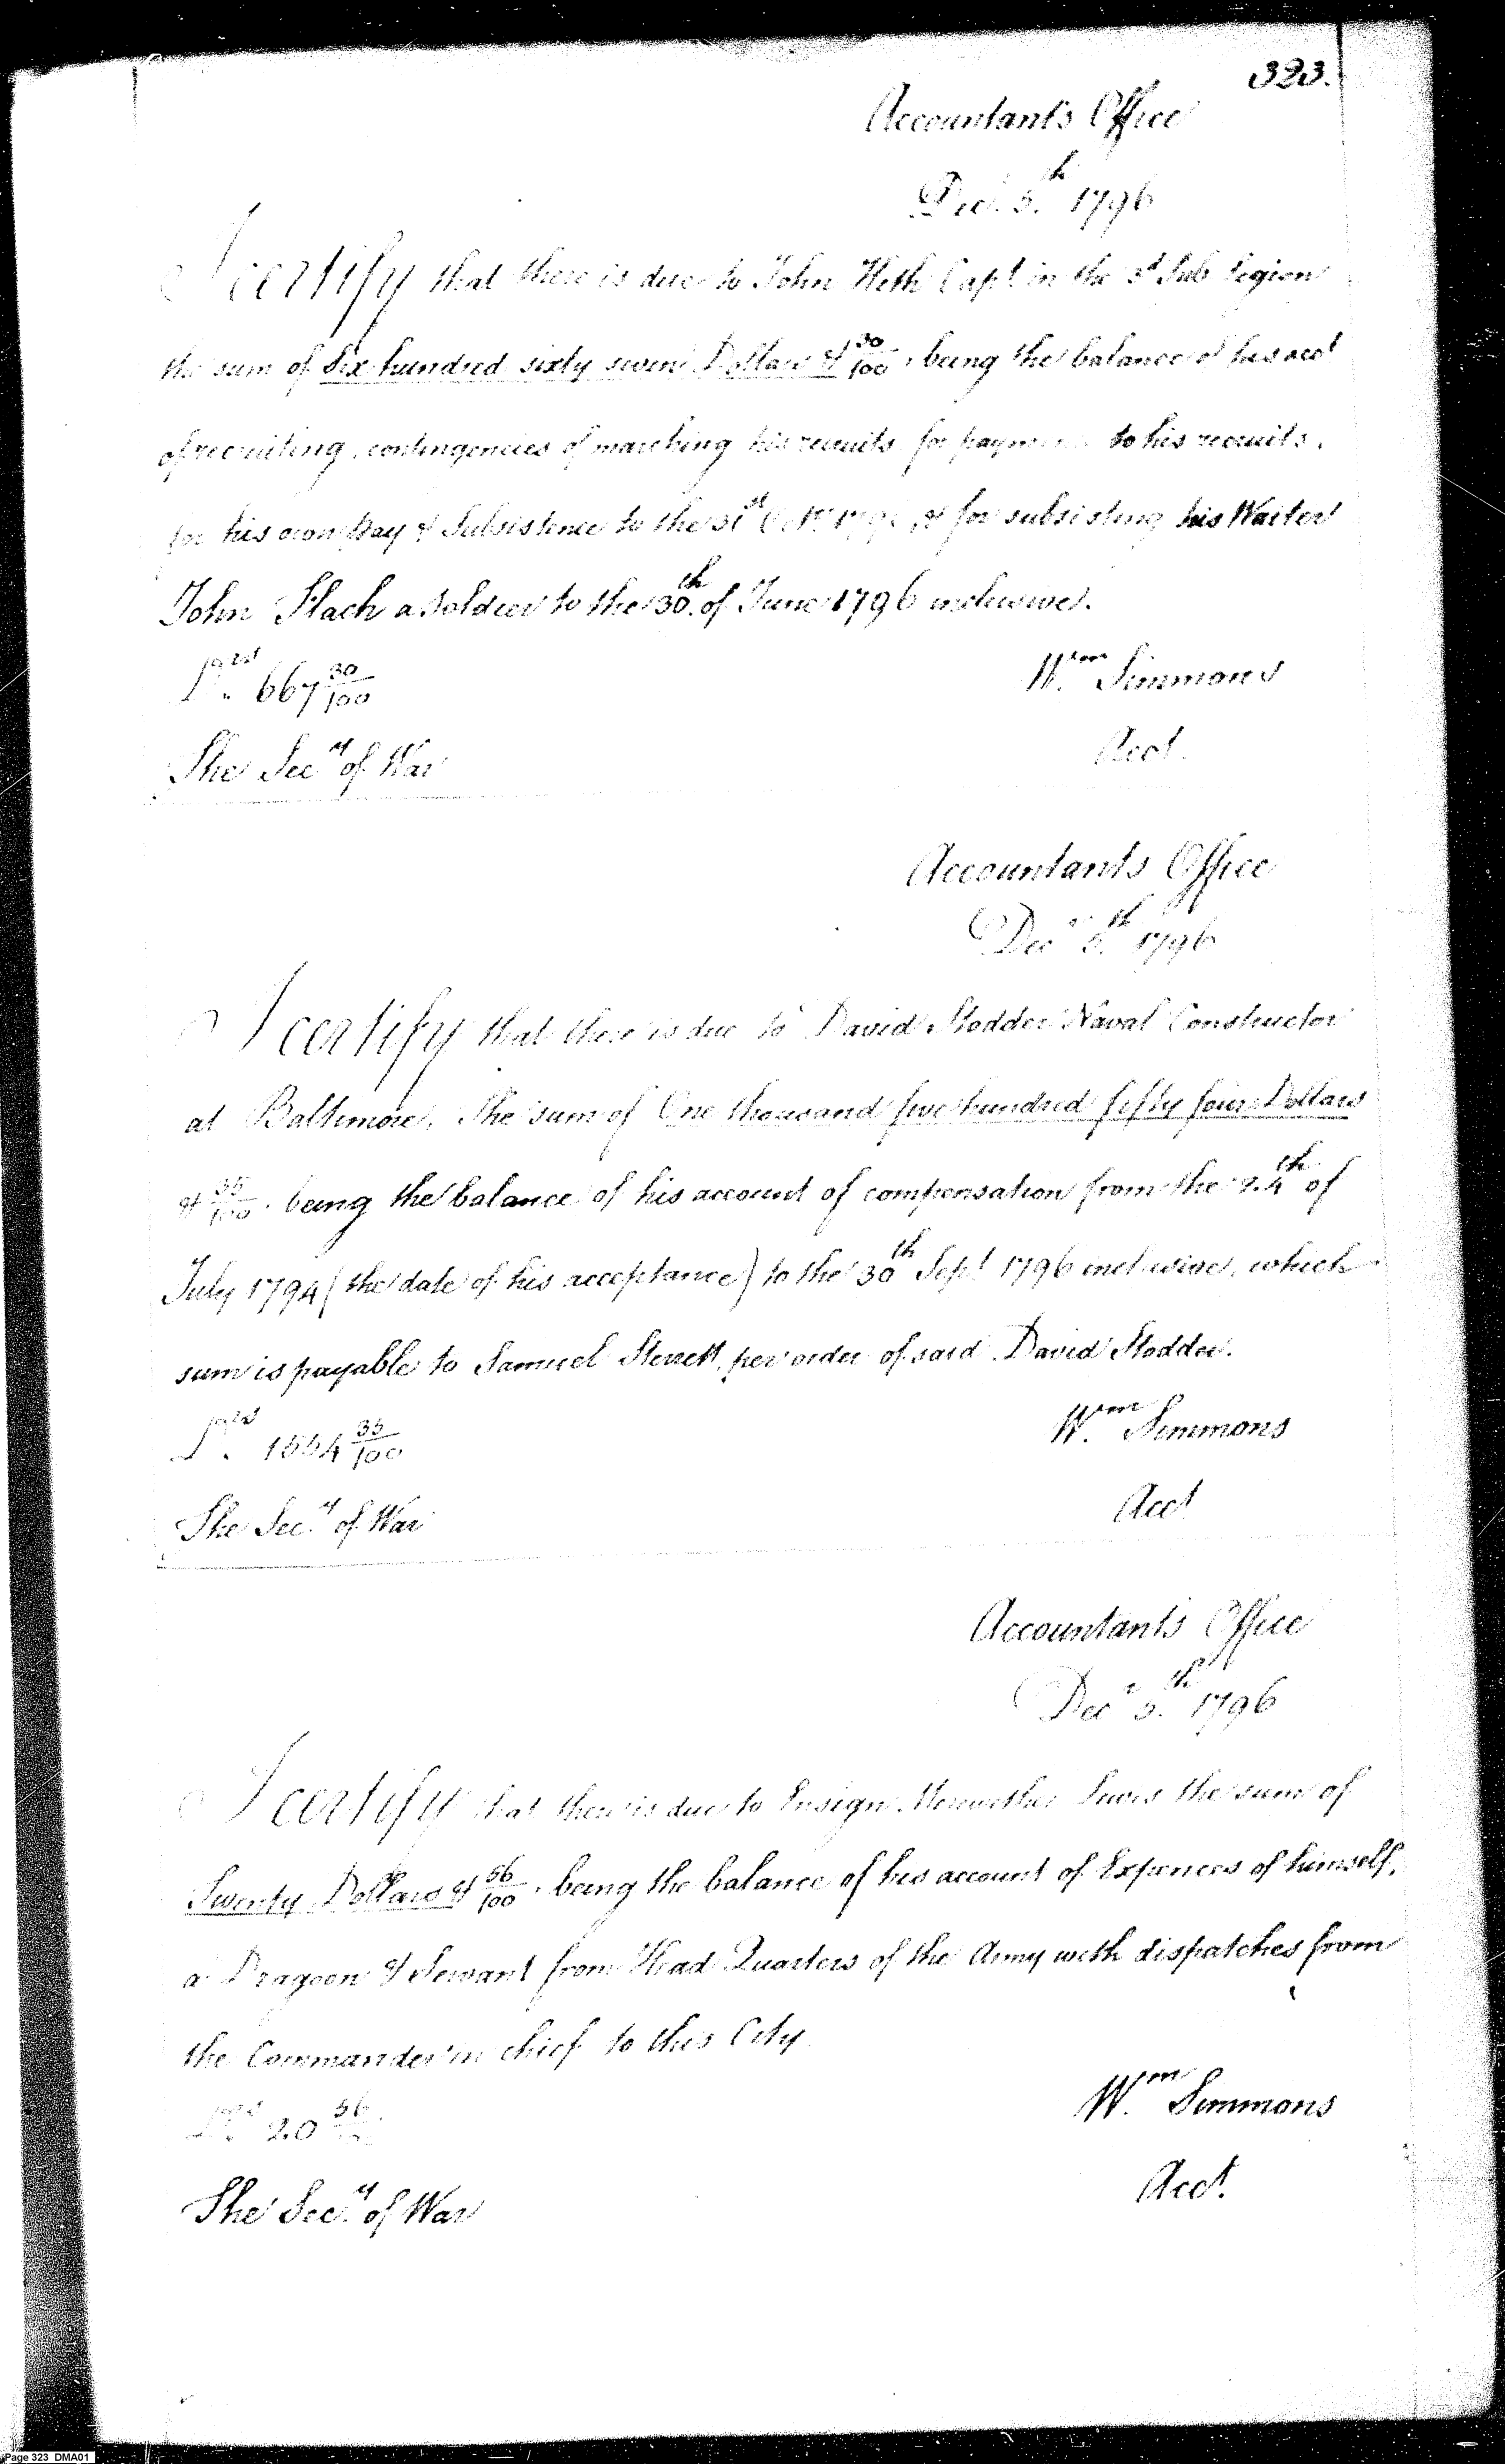 323.
Accountants Office
Dec. 5.th 1796
I certify that there is due to John Heth Capt. in the 3d Sub Legion
the sum of Six hundred sixty seven Dollars & 30/100, being the balance of his acct
of recruiting, contingencies of marching his recruits for payments to his recruits,
for his own Pay & Subsistence to the 31st Octr. & for subsisting his Waiter
John Flach a Soldier to the 30.th of June 1796 inclusive.
667 30/100
Wm. Simmons
Acct.
The Secy. of War
Accountants Office
Decr. 5.th 1796
I certify that there is due to David Stodder Naval Constructor
at Baltimore, The sum of One thousand five hundred fifty four Dollars
& 35/100. being the balance of his account of compensation from the 24th of
July 1794 (the date of his acceptance) to the 30th Sept. 1796 inclusive, which
sum is payable to Samuel Sterett, per order of said David Stodder.
1554 35/100
Wm. Simmons
Acct
The Secy. of War
Accountants Office
Decr. 5.th 1796
I certify that there is due to Ensign Meriwether Lewis the sum of
Twenty Dollars & 56/100. being the balance of his account of Expences of himself,
a Dragoon & Servant from Head Quarters of the Army with dispatches from
the Commander in chief to this City.
20 56
Wm. Simmons
Acct.
The Secy. of War
Page 323 DMA01